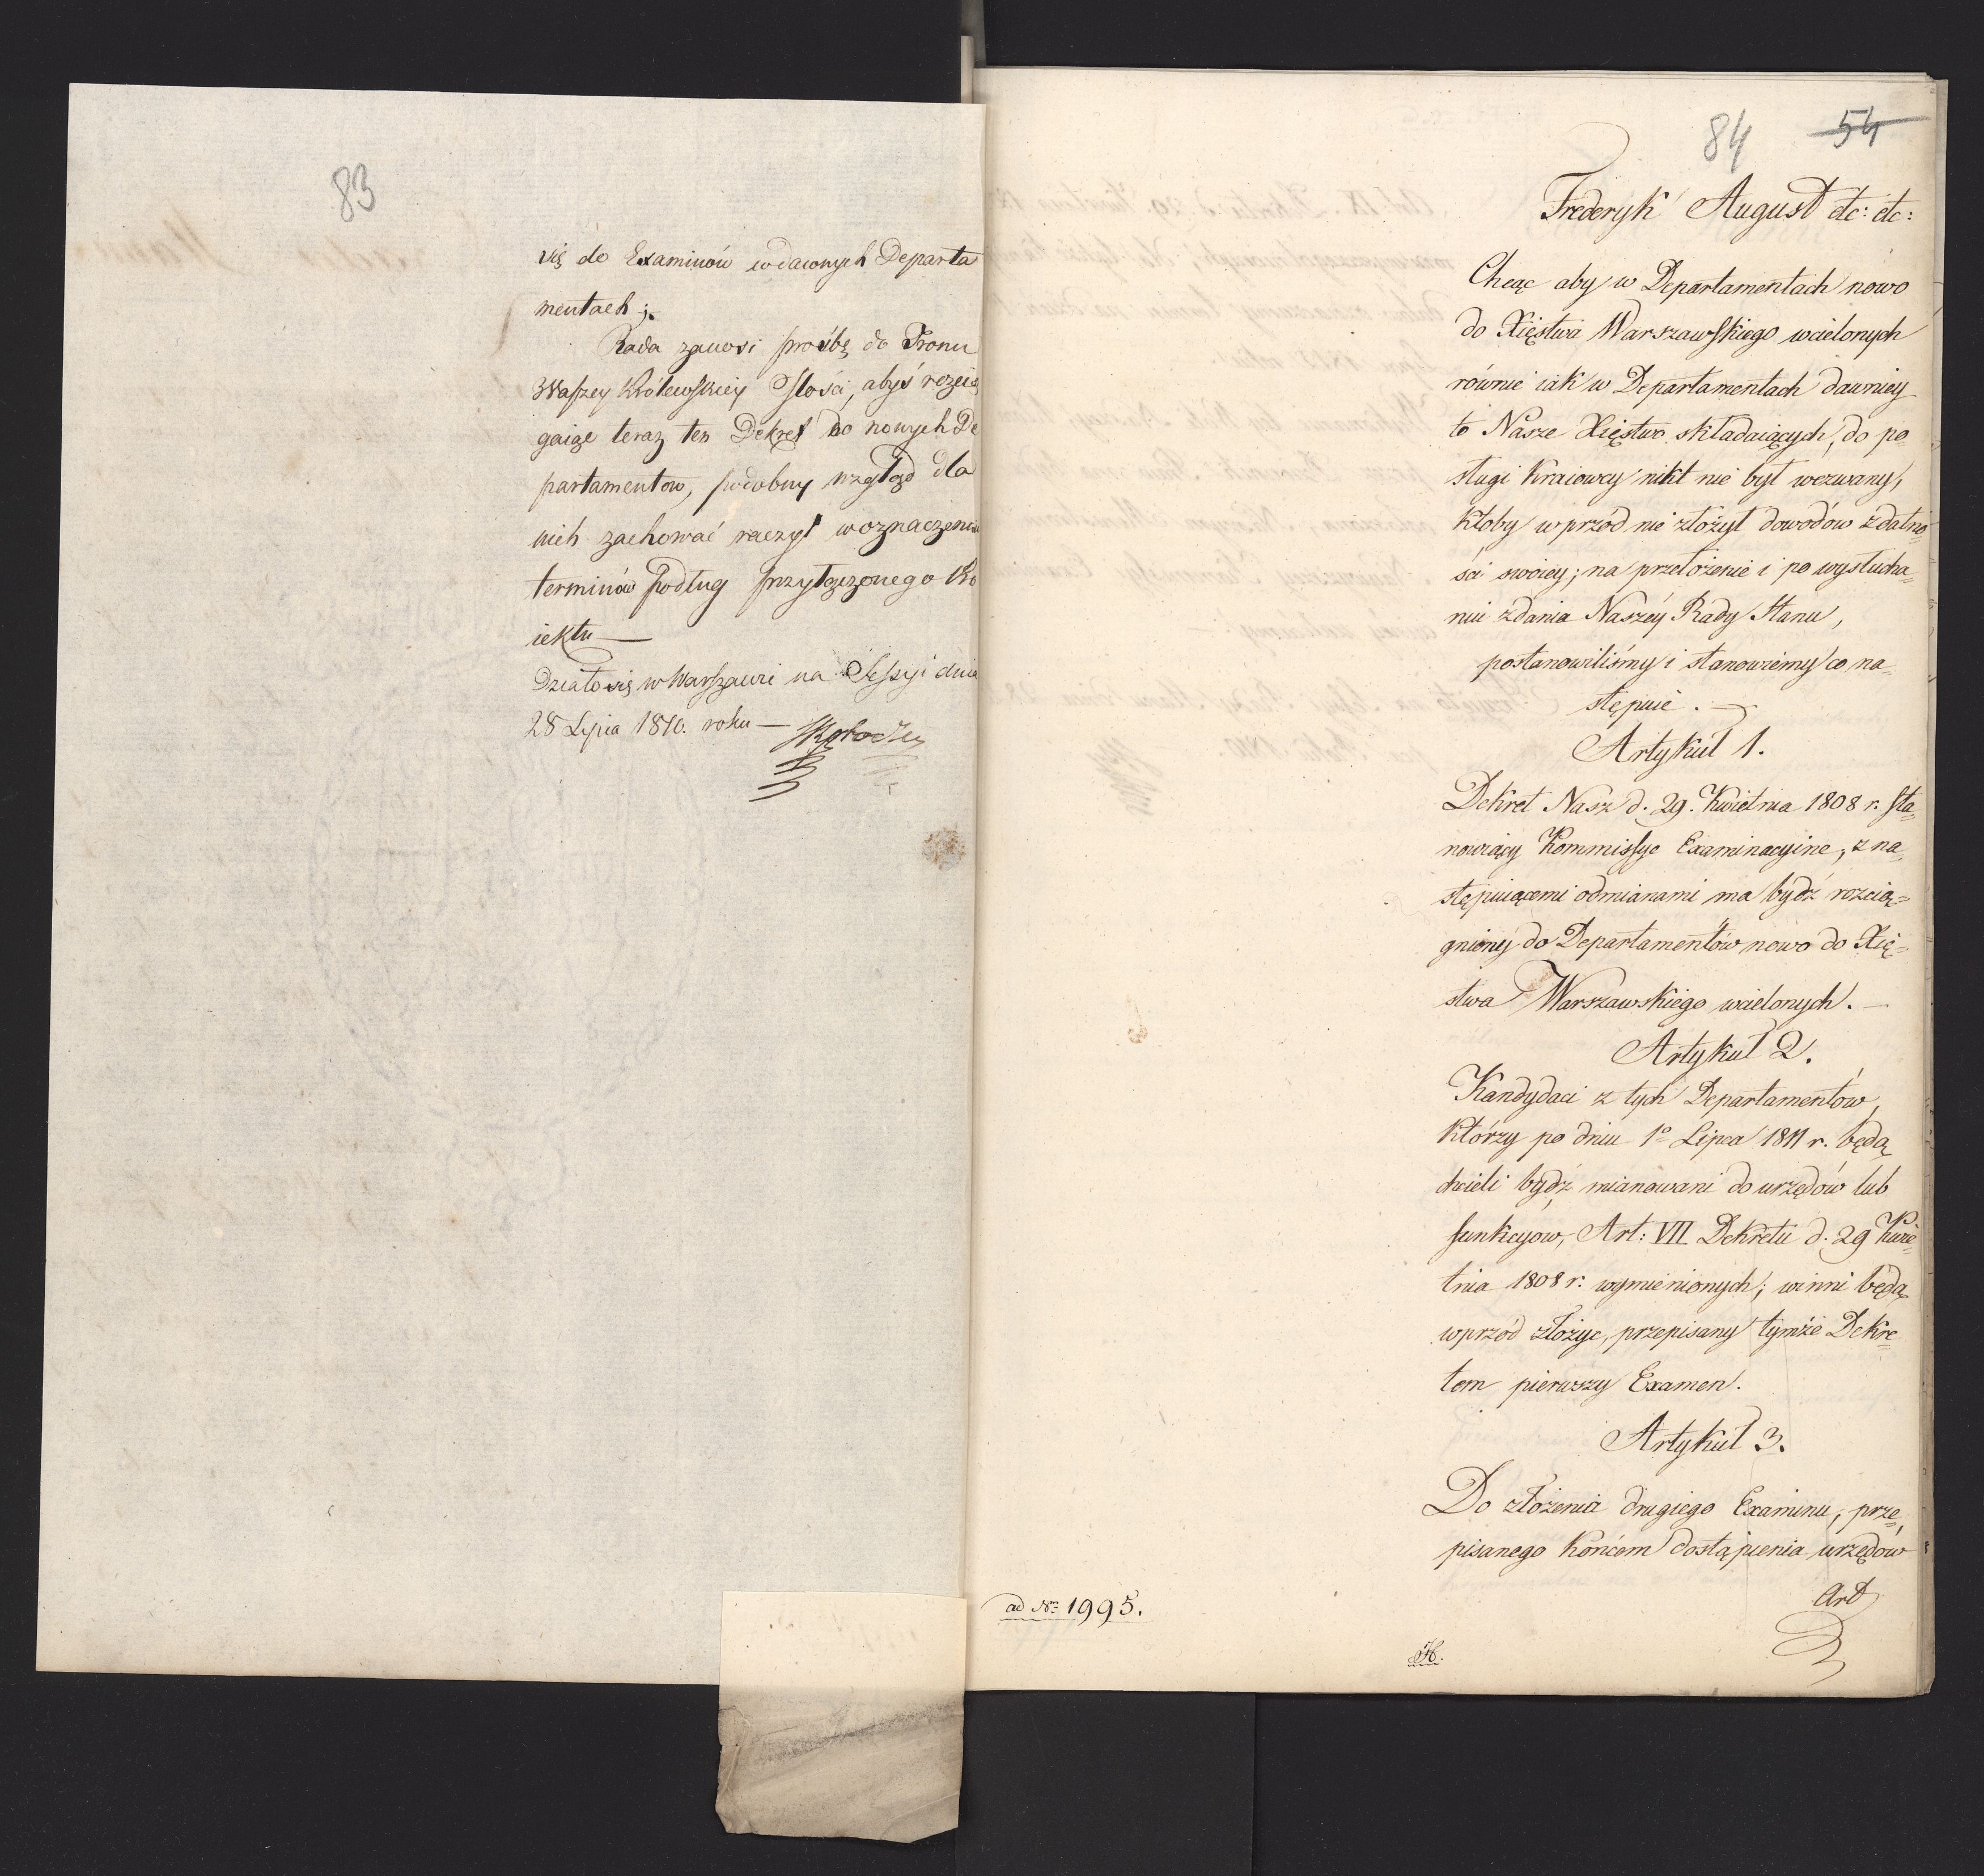 83
się do Examinów w dawnych Departa
mentach;.
Rada zanosi prośbę do Tronu
Waszey Królewskiey Mości, abyś rozcią
gaiąc teraz ten Dekret do nowych De
partamentow, podobny wzgląd dla
nich zachować raczył w oznaczeniu
terminów podług przyłączonego Pro
iektu —
Działo się w Warszawie na Sessyi dnia
28 Lipca 1810. roku —
84 54
Frederyk August etc: etc:
Chcąc aby w Departamentach nowo
do Xięstwa Warszawskiego wcielonych
równie iak w Departamentach dawniey
to Nasze Xięstwo składaiących, do po
sługi Kraiowey nikt nie był wezwany,
ktoby w przód nie złożył dowodów zdatno=
ści swoiey; na przełożenie i po wysłucha=
niu zdania Naszéy Rady Stanu,
postanowiliśmy i stanowiemy co na=
stępuie. —
Artykuł 1.
Dekret Nasz d. 29. Kwietnia 1808 r. sta=
nowiący Kommissye Examinacyine, z na=
stępuiącemi odmianami ma bydź rozcią=
gniony do Departamentów nowo do Xię=
stwa Warszawskiego wcielonych. —
Artykuł 2.
Kandydaci z tych Departamentów,
którzy po dniu 1o Lipca 1811 r. będą
chcieli bydź mianowani do urzędów lub
funkcyow, Art: VII Dekretu d. 29 Kwie=
tnia 1808 r. wymienionych; winni będą
wprzód złożyc, przepisany tymże Dekre=
tem pierwszy Examen.
Artykuł 3.
Do złożenia drugiego Examinu, prze=
pisanego końcem dostąpienia urzędów
Art
ad Nr 1995.